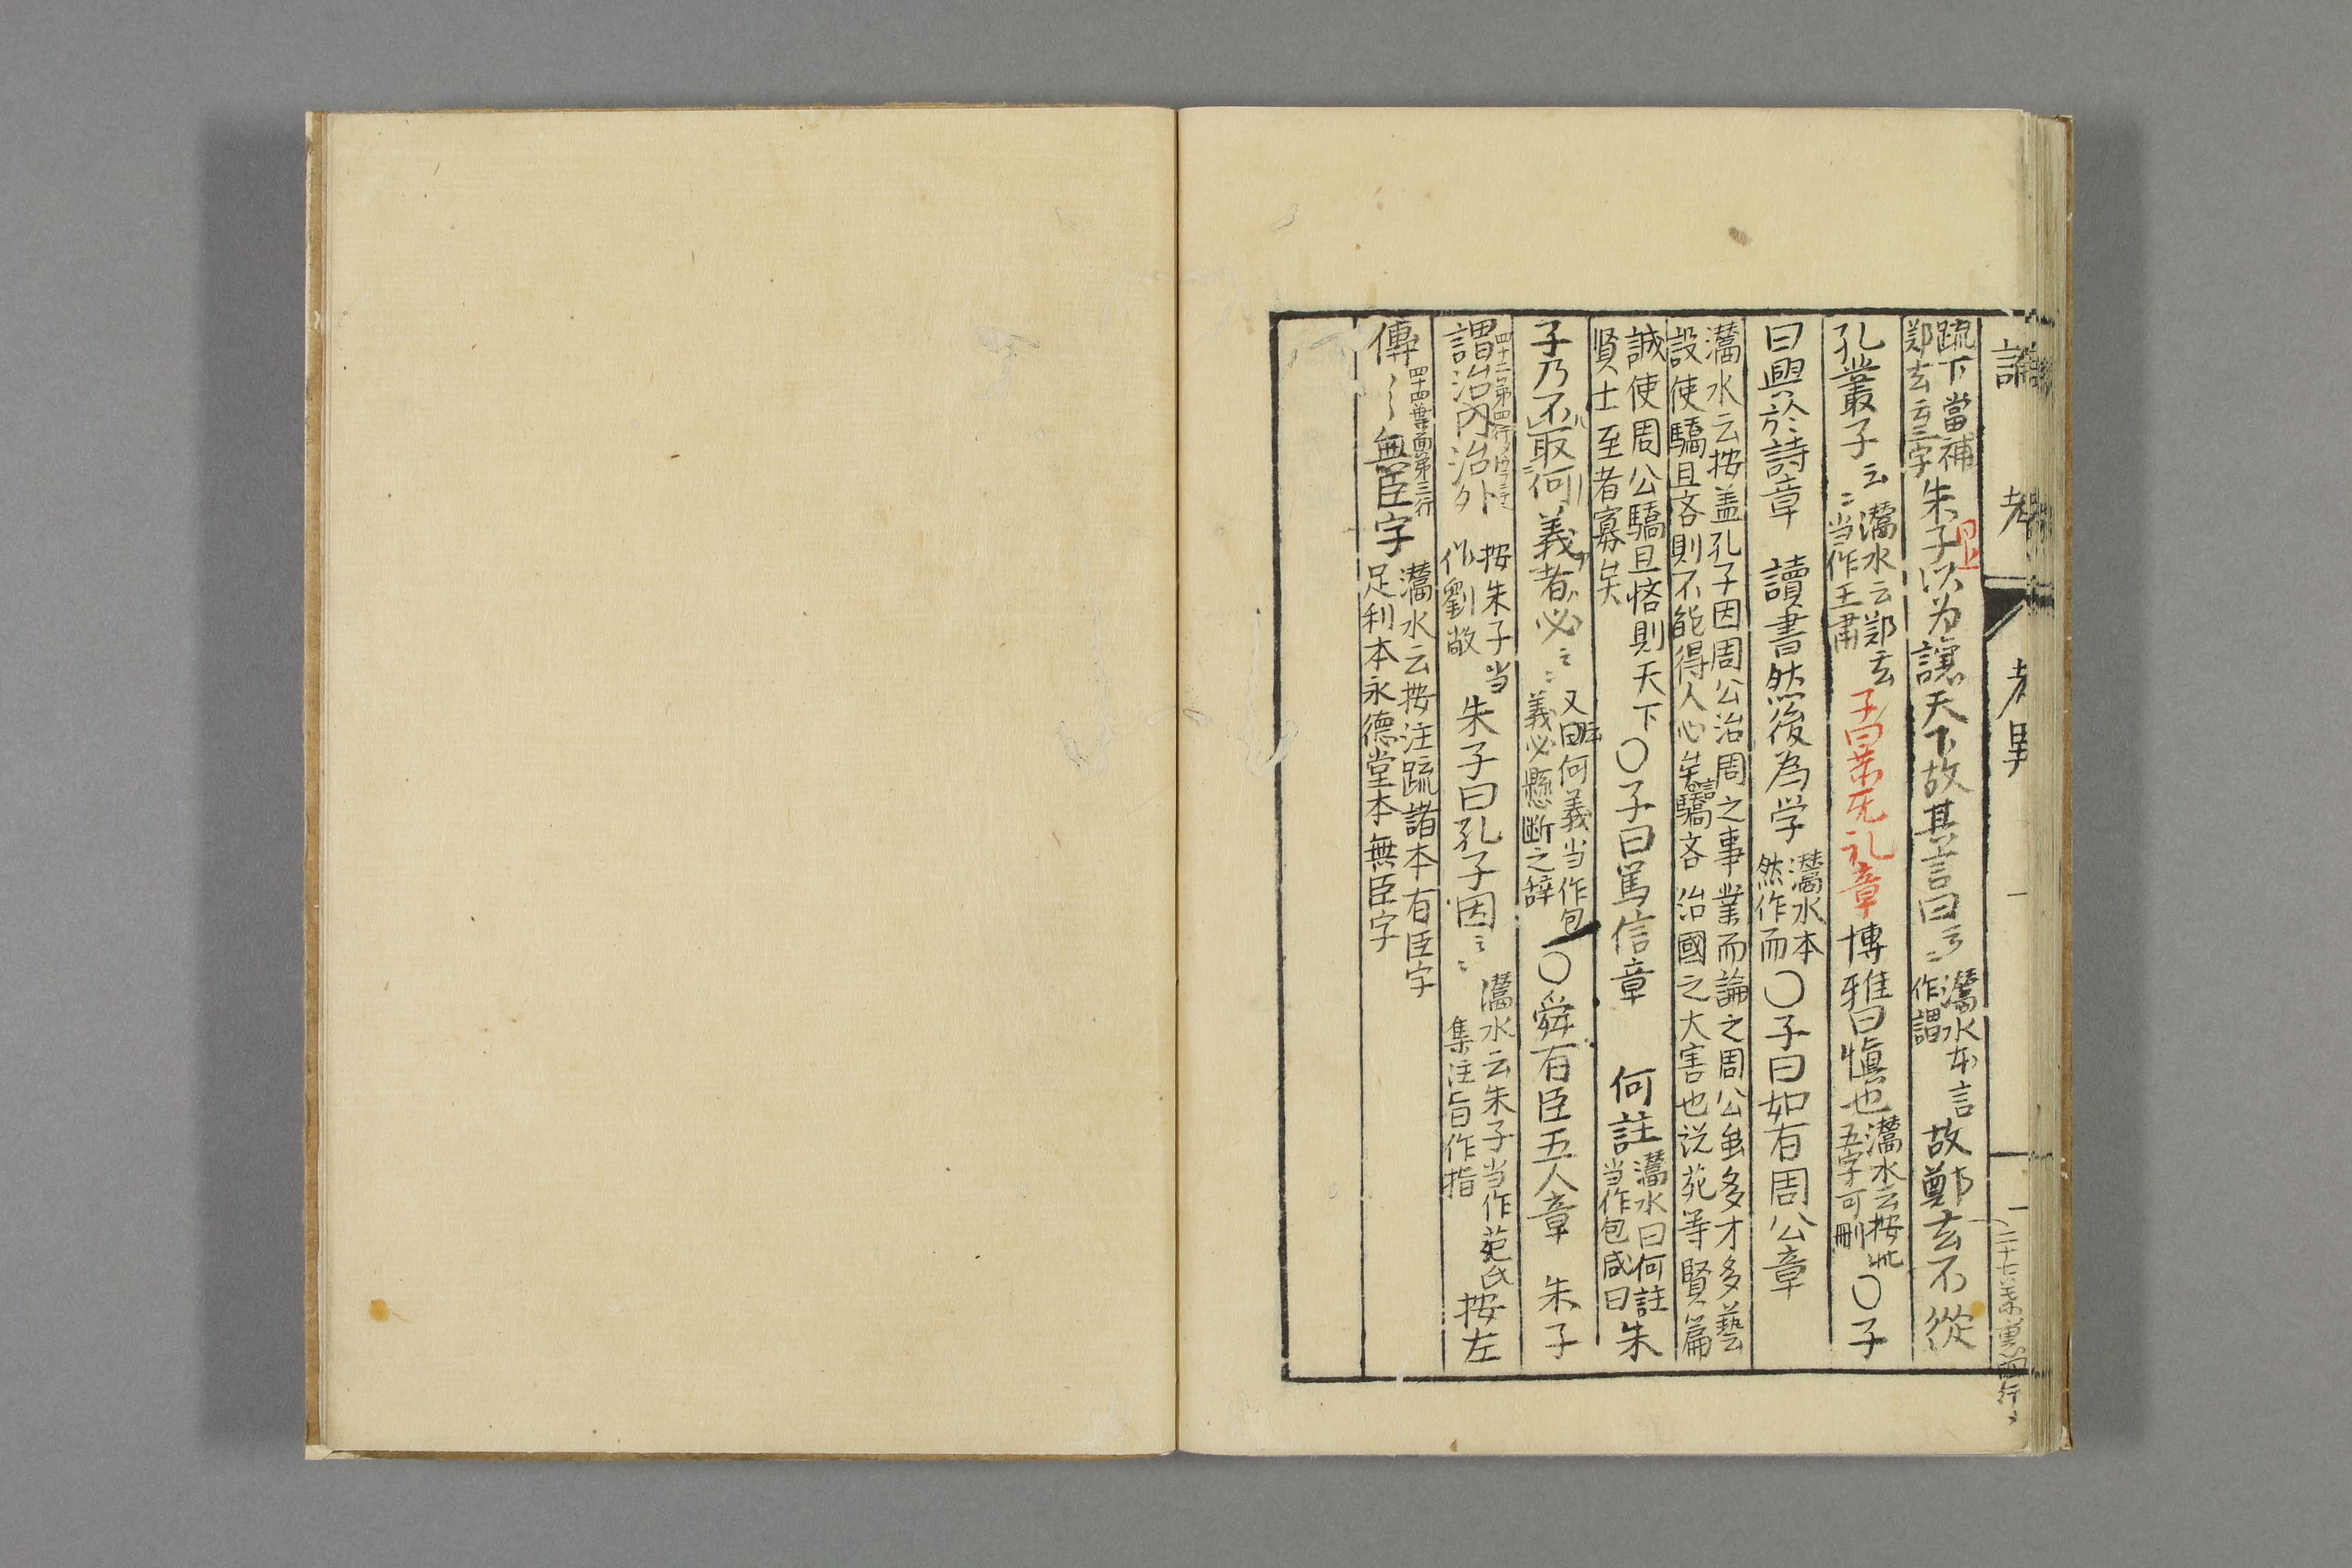 論　考
疏下當補
鄭玄云三字
朱子以为讓天下故其言曰云〻
灊水本言
作謂
故鄭玄不從
孔叢子云〻
灊水云鄭玄
当作王肅
子曰恭而无礼章
博雅曰愼也
灊水云按此
五字可刪
〇子
曰興於詩章　讀書然後為学
灊水本
然作而
〇子曰如有周公章
灊水云按盖孔子因周公治周之事業而論之周公虽多才多藝
設使驕且吝則不能得人心矣言驕吝治國之大害也说苑等賢篇
誠使周公驕且悋則天下
賢士至者寡矣
〇子曰篤信章　何註
灊水曰何註
当作包咸曰
朱
子乃不取何義者必云〻
又曰何義当作包
義必懸断之辞
〇舜有臣五人章　朱子
謂治内治外
按朱子当
作劉敞
朱子曰孔子因云〻
灊水云朱子当作范氏
集注旨作指
按左
傳〻無臣字
四十四葉面第三行
灊水云按注疏諸本有臣字
足利本永德堂本無臣字